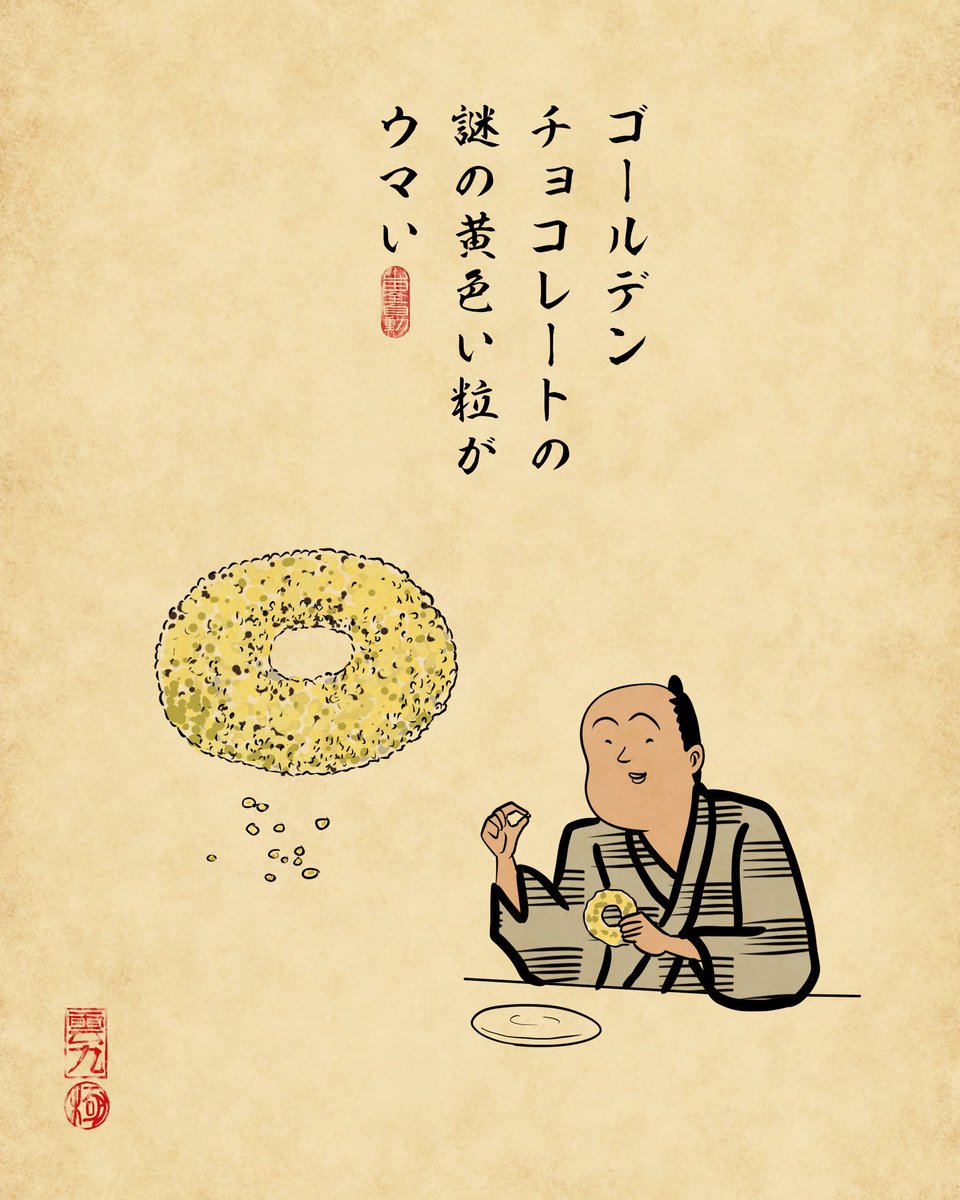 ゴールデン
チョコレートの
謎の黄色い粒が
ウマい
雲九
極